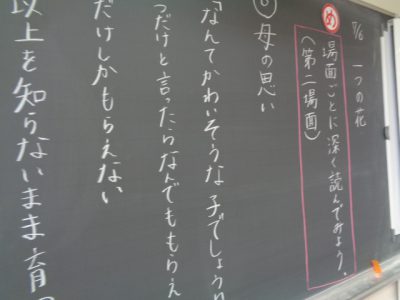 7/6 一つの花
め
場面ごとに深く読んでみよう。
（第二場面）
母の思い
「なんてかわいそうな子でしょう
つだけと言ったらなんでももらえ
だけしかもらえない
以上を知らないまま育